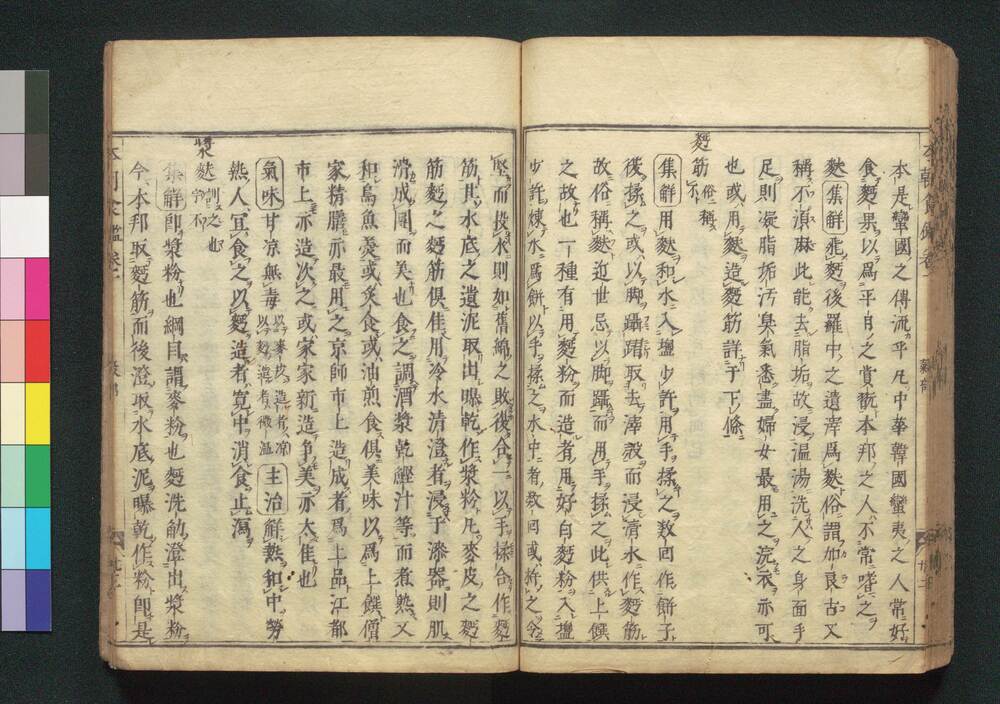 本是蠻國之傳流乎凡中華韓國蠻夷之人常好
食麪果以爲平日之賞翫本邦之人不常嗜之
麩集解此麪後羅中之遺滓爲麩俗謂加良古又
稱不須麻此能去脂垢故浸温湯洗人之身面手
足則凝脂垢汚臭氣悉盡婦女最用之浣衣亦可
也或用麩造麪筋詳于下條
麪筋俗稱
集解用麩和水入塩少許用手揉之数回作餅子
後揉之或以脚躡蹭取去滓殼而浸清水作麪筋
故俗稱麩近世忌以脚躡而用手揉之此供上饌
之故也一種有用麪粉而造者用好白麪粉入塩
少許煉水爲餅以手揉之水中者数回或拵之令
堅而投水則如舊綿之敗後合二以手揉合作麪
筋其水底之遺泥取出曝乾作漿粉凡麥皮之麪
筋麪之麪筋倶佳用冷水清澄者浸于漆器則肌
滑成團而美也食之調酒漿乾鰹汁等而煮熟又
和烏魚羹或炙食或油煎食倶美味以爲上饌僧
家精膳亦最用之京師市上造成者爲上品江都
市上亦造次之或家家新造争美亦太佳也
氣味甘凉無毒以麥皮造者凉以麪造者微温主治解熱和中勞
熱人宜食之以麪造者寛中消食止瀉
漿麩訓之也字不
集解即漿粉也綱目謂麥粉也麪洗觔澄出漿粉
今本邦取麪筋而後澄取水底泥曝乾作粉即是